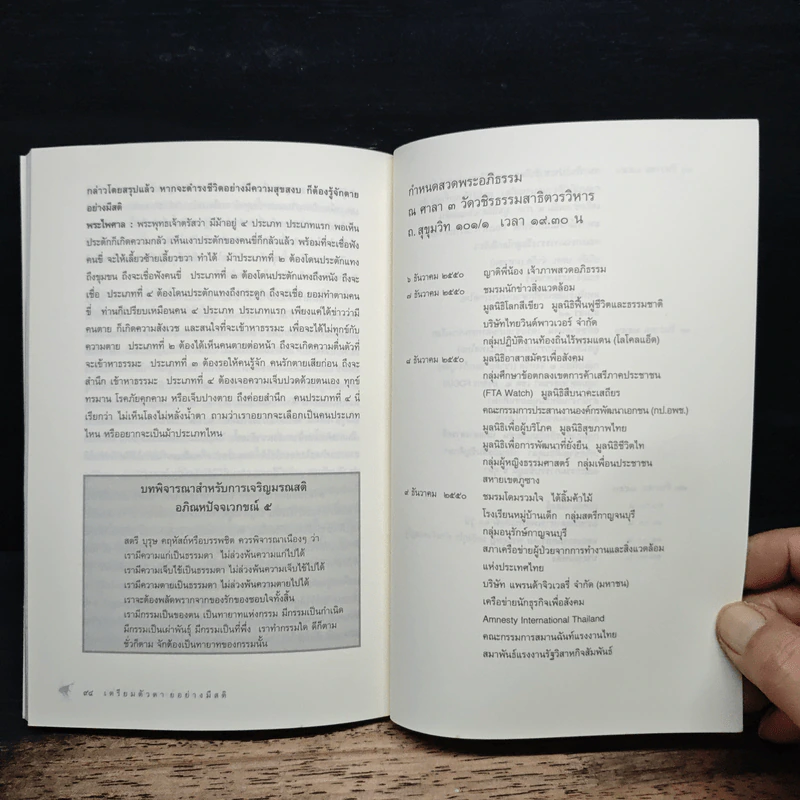 กล่าวโดยสรุปแล้ว หากจะดำรงชีวิตอย่างมีความสุขสงบ ก็ต้องรู้จักตาย
อย่างมีสติ
พระไพศาล : พระพุทธเจ้าตรัสว่า มีม้าอยู่ ๔ ประเภท ประเภทแรก พอเห็น
ประตักก็เกิดความกลัว เห็นเงาประตักของคนขี่ก็กลัวแล้ว พร้อมที่จะเชื่อฟัง
คนขี่ จะให้เลี้ยวซ้ายเลี้ยวขวา ทำได้ ม้าประเภทที่ ๒ ต้องโดนประตักแทง
ถึงขุมขน ถึงจะเชื่อฟังคนขี่ ประเภทที่ ๓ ต้องโดนประตักแทงถึงหนัง ถึงจะ
เชื่อ ประเภทที่ ๔ ต้องโดนประตักแทงถึงกระดูก ถึงจะเชื่อ ยอมทำตามคน
ขี่ ท่านก็เปรียบเหมือนคน ๔ ประเภท ประเภทแรก เพียงแค่ได้ข่าวว่ามี
คนตาย ก็เกิดความสังเวช และสนใจที่จะเข้าหาธรรมะ เพื่อจะได้ไม่ทุกข์กับ
ความตาย ประเภทที่ ๒ ต้องได้เห็นคนตายต่อหน้า ถึงจะเกิดความตื่นตัวที่
จะเข้าหาธรรมะ ประเภทที่ ๓ ต้องรอให้คนรู้จัก คนรักตายเสียก่อน ถึงจะ
สำนึก เข้าหาธรรมะ ประเภทที่ ๔ ต้องเจอความเจ็บปวดด้วยตนเอง ทุกข์
ทรมาน โรคภัยคุกคาม หรือเจ็บปางตาย ถึงค่อยสำนึก คนประเภทที่ ๔ นี่
เรียกว่า ไม่เห็นโลงไม่หลั่งน้ำตา ถามว่าเราอยากจะเลือกเป็นคนประเภท
ไหน หรืออยากจะเป็นม้าประเภทไหน
บทพิจารณาสำหรับการเจริญมรณสติ
อภิณหปัจจเวกขณ์ ๕
สตรี บุรุษ คฤหัสถ์หรือบรรพชิต ควรพิจารณาเนืองๆ ว่า
เรามีความแก่เป็นธรรมดา ไม่ล่วงพ้นความแก่ไปได้
เรามีความเจ็บใช้เป็นธรรมดา ไม่ล่วงพ้นความเจ็บใช้ไปได้
เรามีความตายเป็นธรรมดา ไม่ล่วงพ้นความตายไปได้
เราจะต้องพลัดพรากจากของรักของชอบใจทั้งสิ้น
เรามีกรรมเป็นของตน เป็นทายาทแห่งกรรม มีกรรมเป็นกำเนิด
มีกรรมเป็นเผ่าพันธุ์ มีกรรมเป็นที่พึ่ง เราทำกรรมใด ดีก็ตาม
ชั่วก็ตาม จักต้องเป็นทายาทของกรรมนั้น
๙๔ เตรียมตัวตายอย่างมีสติ
กำหนดสวดพระอภิธรรม
ณ ศาลา ๓ วัดวชิรธรรมสาธิตวรวิหาร
ถ. สุขุมวิท ๑๐๑/๑ เวลา ๑๙.๓๐ น
๖ ธันวาคม ๒๕๕๐ ญาติพี่น้อง เจ้าภาพสวดอภิธรรม
๗ ธันวาคม ๒๕๕๐ ชมรมนักข่าวสิ่งแวดล้อม
มูลนิธิโลกสีเขียว มูลนิธิฟื้นฟูชีวิตและธรรมชาติ
บริษัทไทยวินด์พาวเวอร์ จำกัด
กลุ่มปฏิบัติงานท้องถิ่นไร้พรมแดน (โลโคลแอ็ค)
๘ ธันวาคม ๒๕๕๐ มูลนิธิอาสาสมัครเพื่อสังคม
กลุ่มศึกษาข้อตกลงเขตการค้าเสรีภาคประชาชน
(FTA Watch) มูลนิธิสืบนาคะเสถียร
คณะกรรมการประสานงานองค์กรพัฒนาเอกชน (กป.อพช.)
มูลนิธิเพื่อผู้บริโภค มูลนิธิสุขภาพไทย
มูลนิธิเพื่อการพัฒนาที่ยั่งยืน มูลนิธิชีวิตไท
กลุ่มผู้หญิงธรรมศาสตร์ กลุ่มเพื่อนประชาชน
สหายเขตภูซาง
๙ ธันวาคม ๒๕๕๐ ชมรมโดมรวมใจ ใต้ลิ้มค้าไม้
โรงเรียนหมู่บ้านเด็ก กลุ่มสตรีกาญจนบุรี
กลุ่มอนุรักษ์กาญจนบุรี
สภาเครือข่ายผู้ป่วยจากการทำงานและสิ่งแวดล้อม
แห่งประเทศไทย
บริษัท แพรนด้าจิวเวลรี่ จำกัด (มหาชน)
เครือข่ายนักธุรกิจเพื่อสังคม
Amnesty International Thailand
คณะกรรมการสมานฉันท์แรงงานไทย
สมาพันธ์แรงงานรัฐวิสาหกิจสัมพันธ์